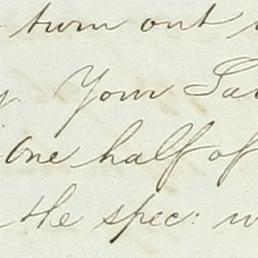 turn out
Your
One half of
the spec: